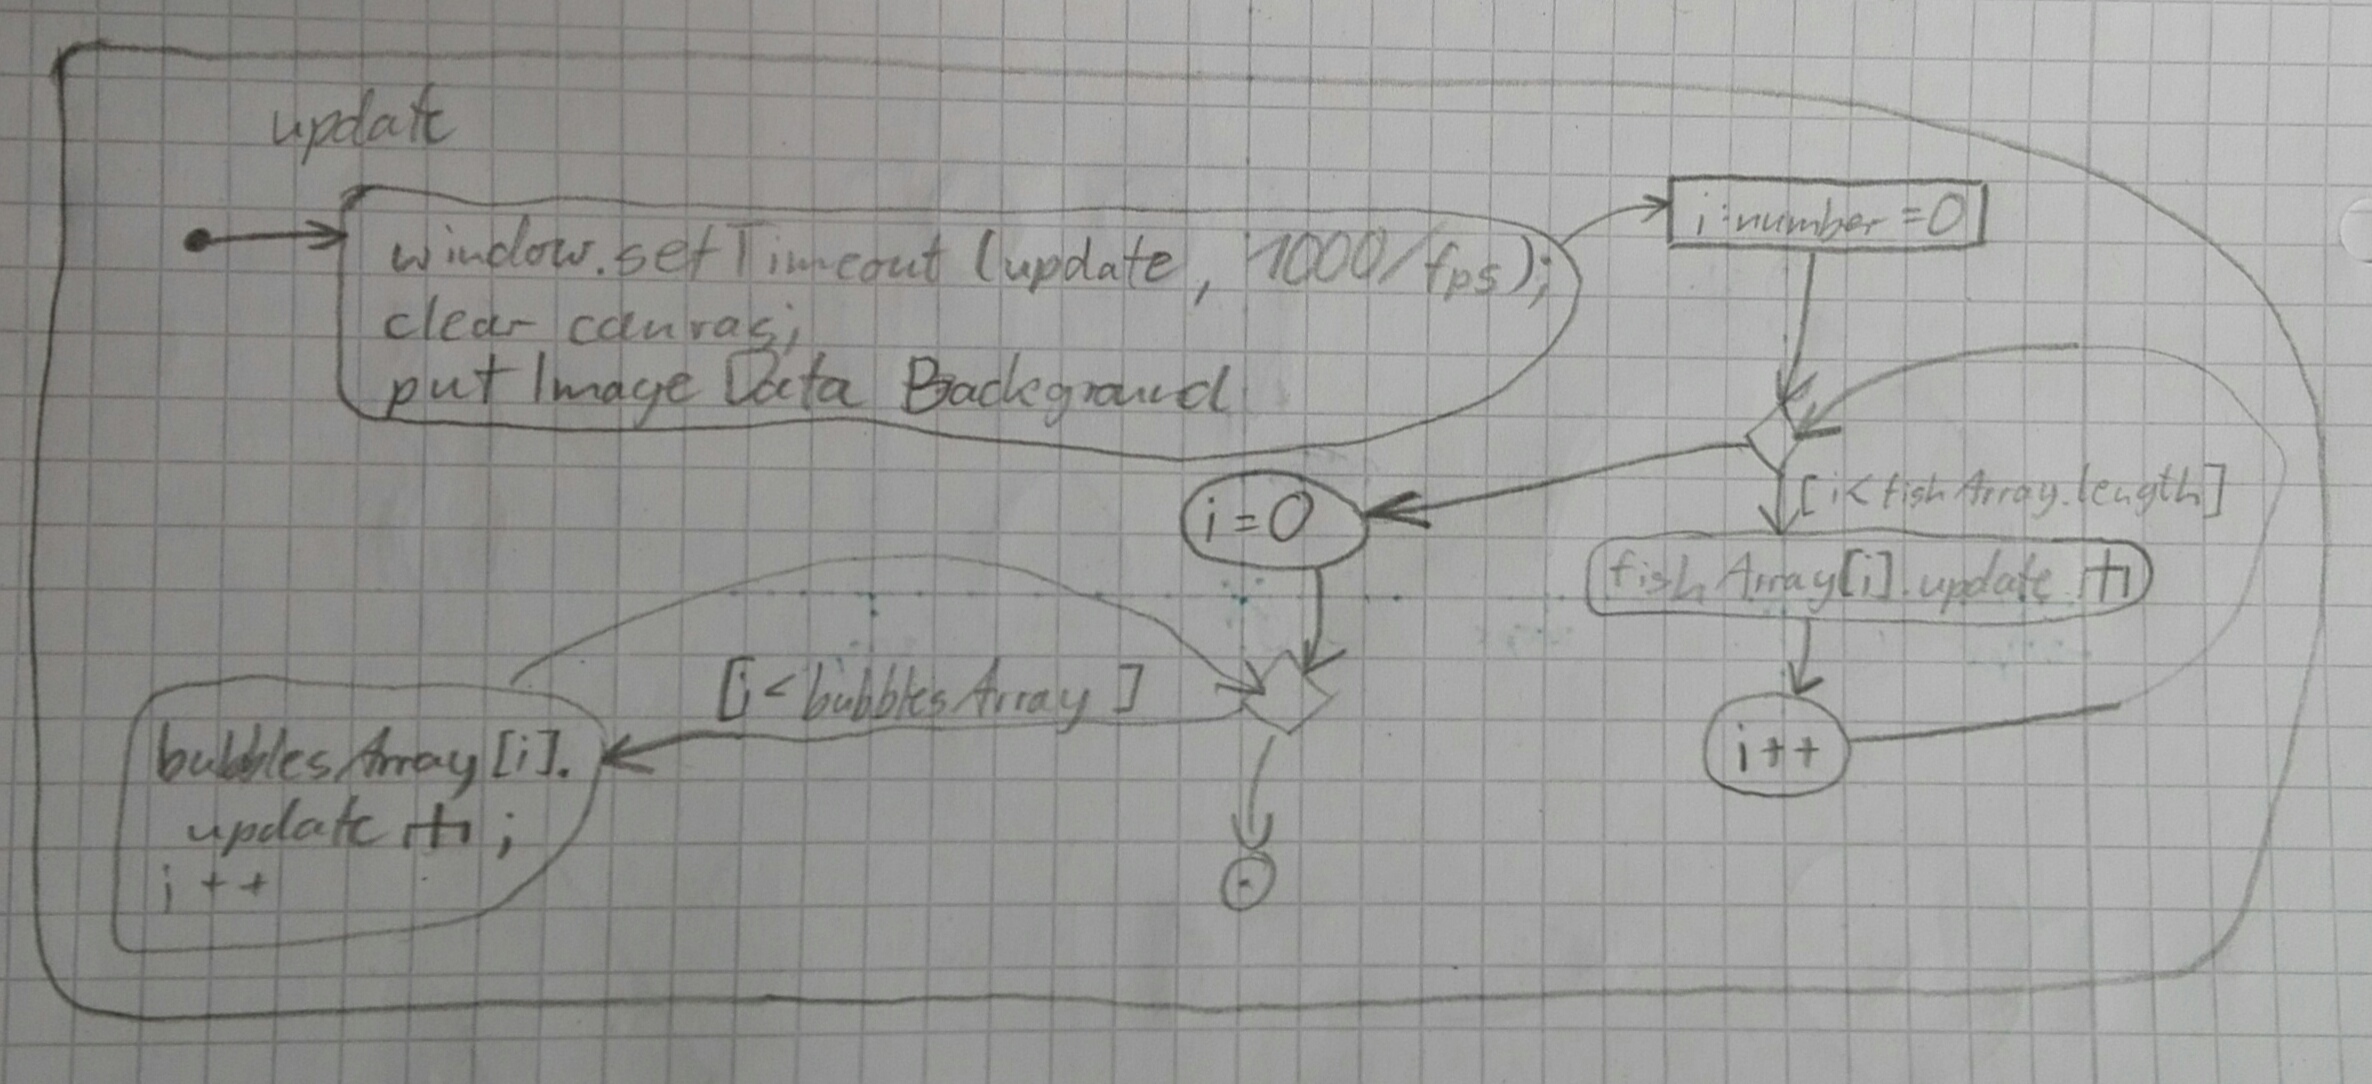 update
window.setTimeout (update, 1000/fps);
clear canvas;
put Image Data Background
i:number =0
[i< fishArray.length]
i=0
fishArray[i].update
[i< bubblesArray]
i++
bubblesArray[i].
update ;
i++